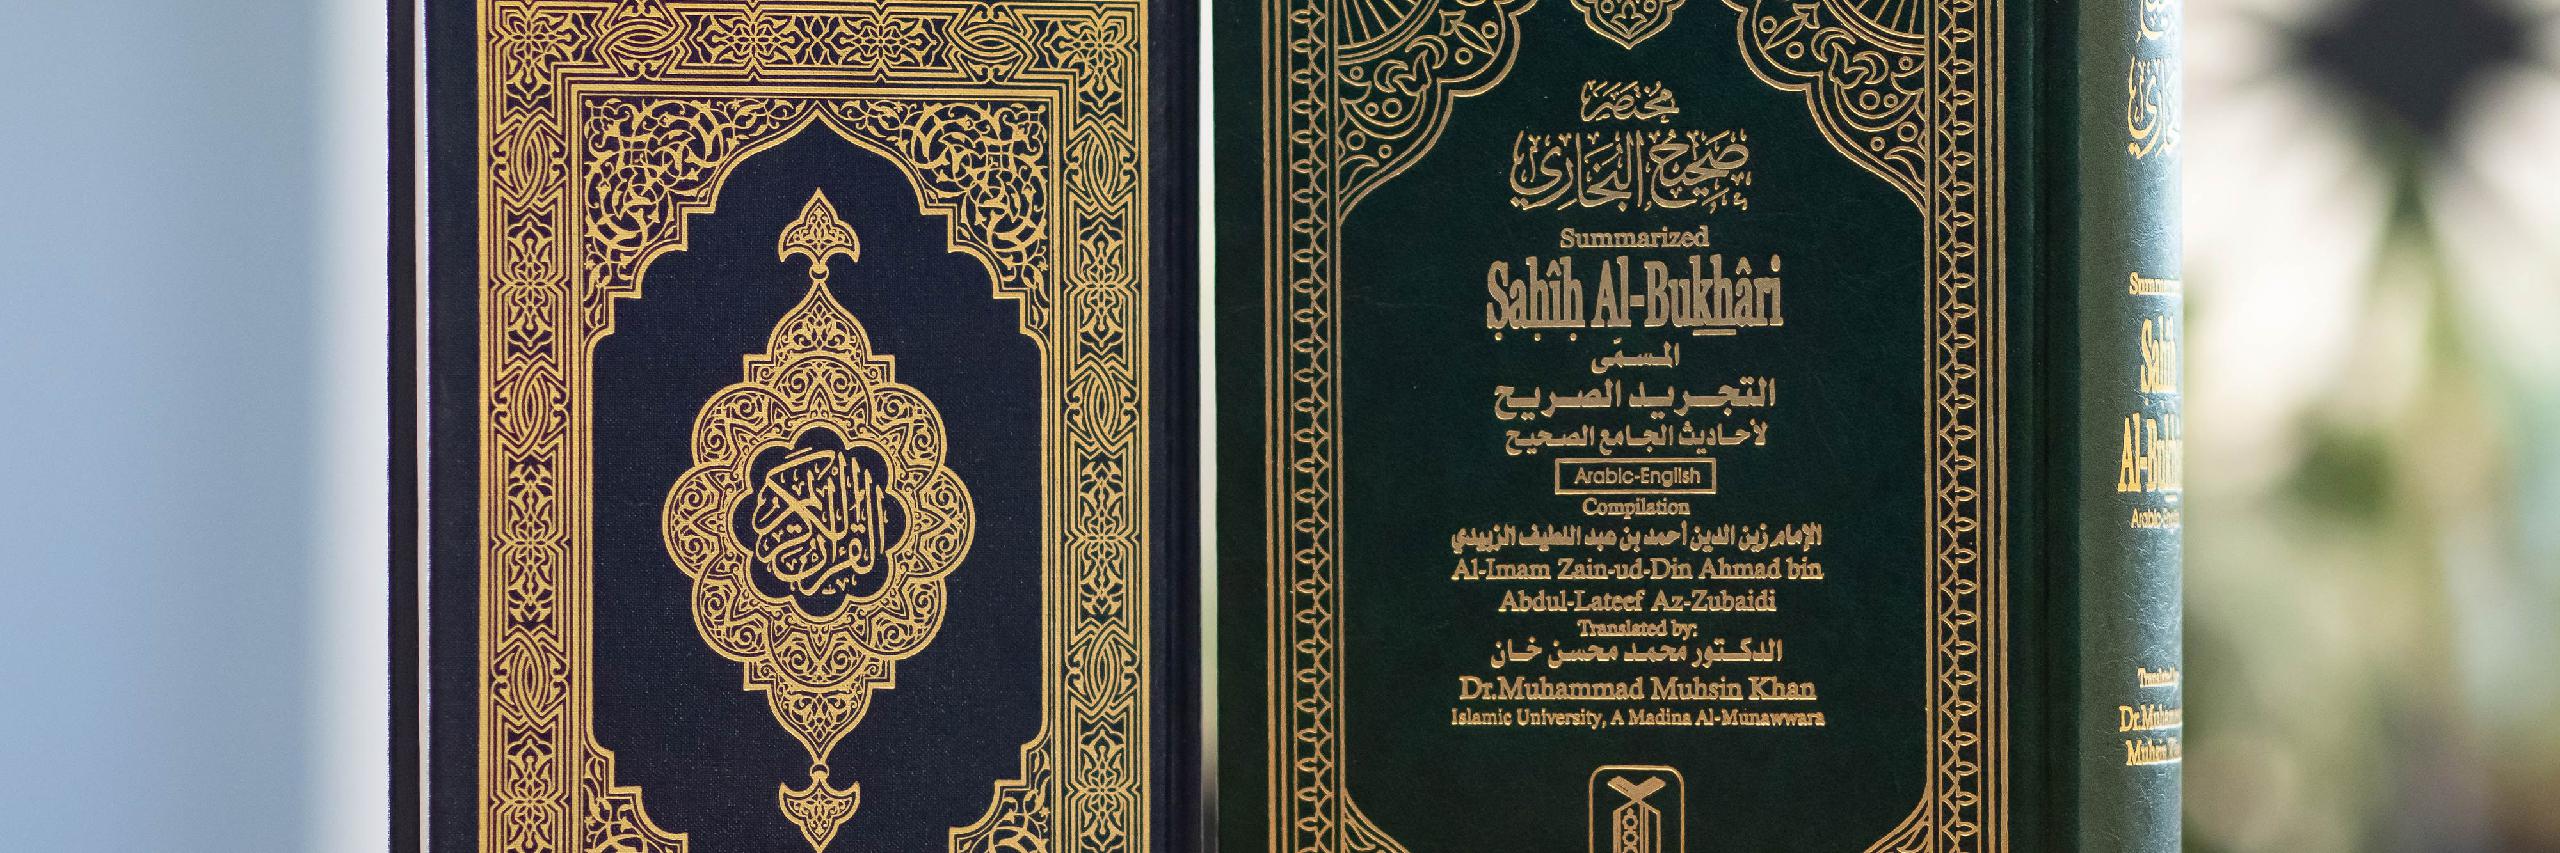 القرآن الكريم
مختصر
صحيح البخاري
Summarized
Ṣaḥîḥ Al-Bukhâri
المسمّى
التجريد الصريح
لأحاديث الجامع الصحيح
Arabic-English
Compilation
الإمام زين الدين أحمد بن عبد اللطيف الزبيدي
Al-Imam Zain-ud-Din Ahmad bin
Abdul-Lateef Az-Zubaidi
Translated by:
الدكتور محمد محسن خان
Dr.Muhammad Muhsin Khan
Islamic University, A Madina Al-Munawwara